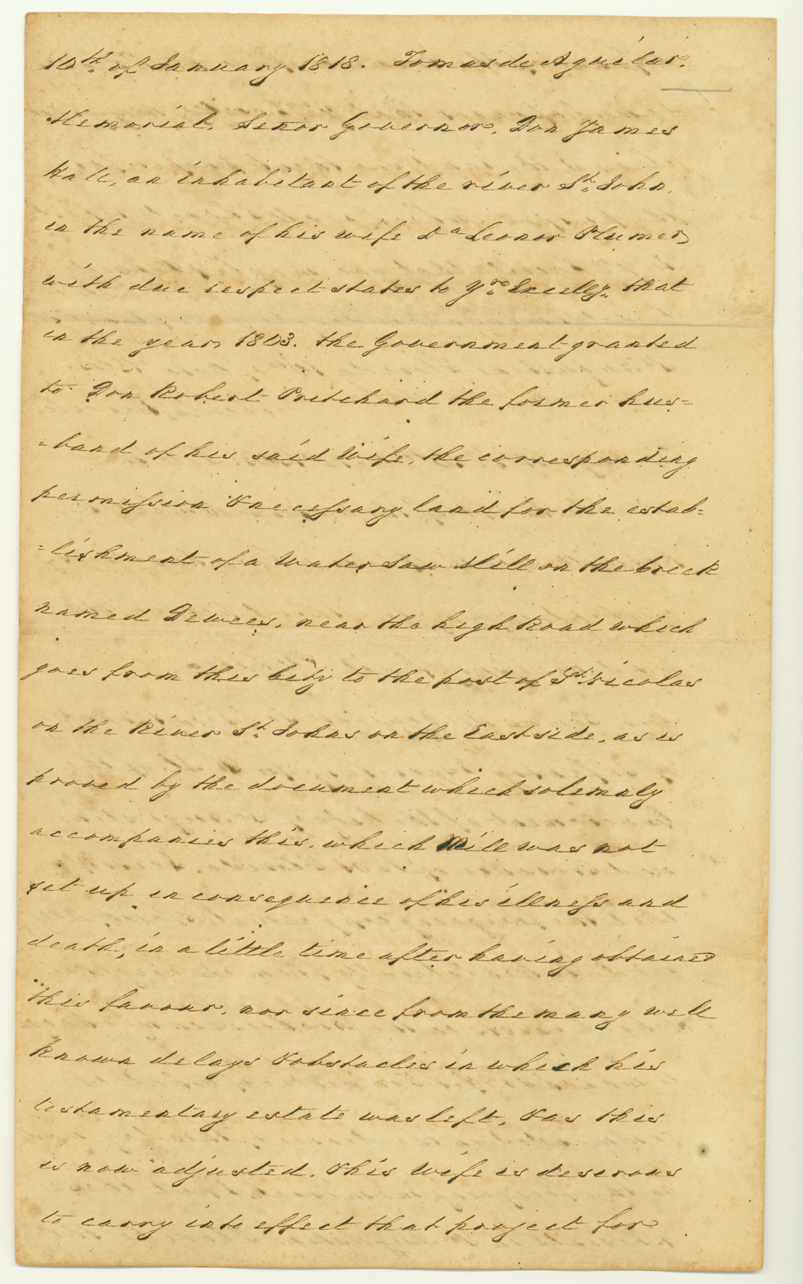 10th. of January 1818. Tomas de Aguilar.
Memorial. Senor Governor, Don James
Hall, an inhabitant of the river St. John,
in the name of his wife Da Leonor Plumer,
with due respect states to Yre. Excelly. that
in the year, 1803. the Government granted
to Don Robert Pritchard the former hus=
=band of his said Wife, the corresponding
permission & necessary land for the estab=
=lishment of a Water Saw Mill on the Creek
named Dewees, near the high Road which
goes from this City to the post of St. Nicolas
on the River St. Johns on the East side, as is
proved by the document which solemnly
accompanies this. which Mill was not
set up in consequence of his illness and
death, in a little time after having obtained
this favour, nor since from the many well
known delays & obstacles in which his
testamentary estate was left, & as this
is now adjusted. & his Wife is desirous
to carry into effect that project for